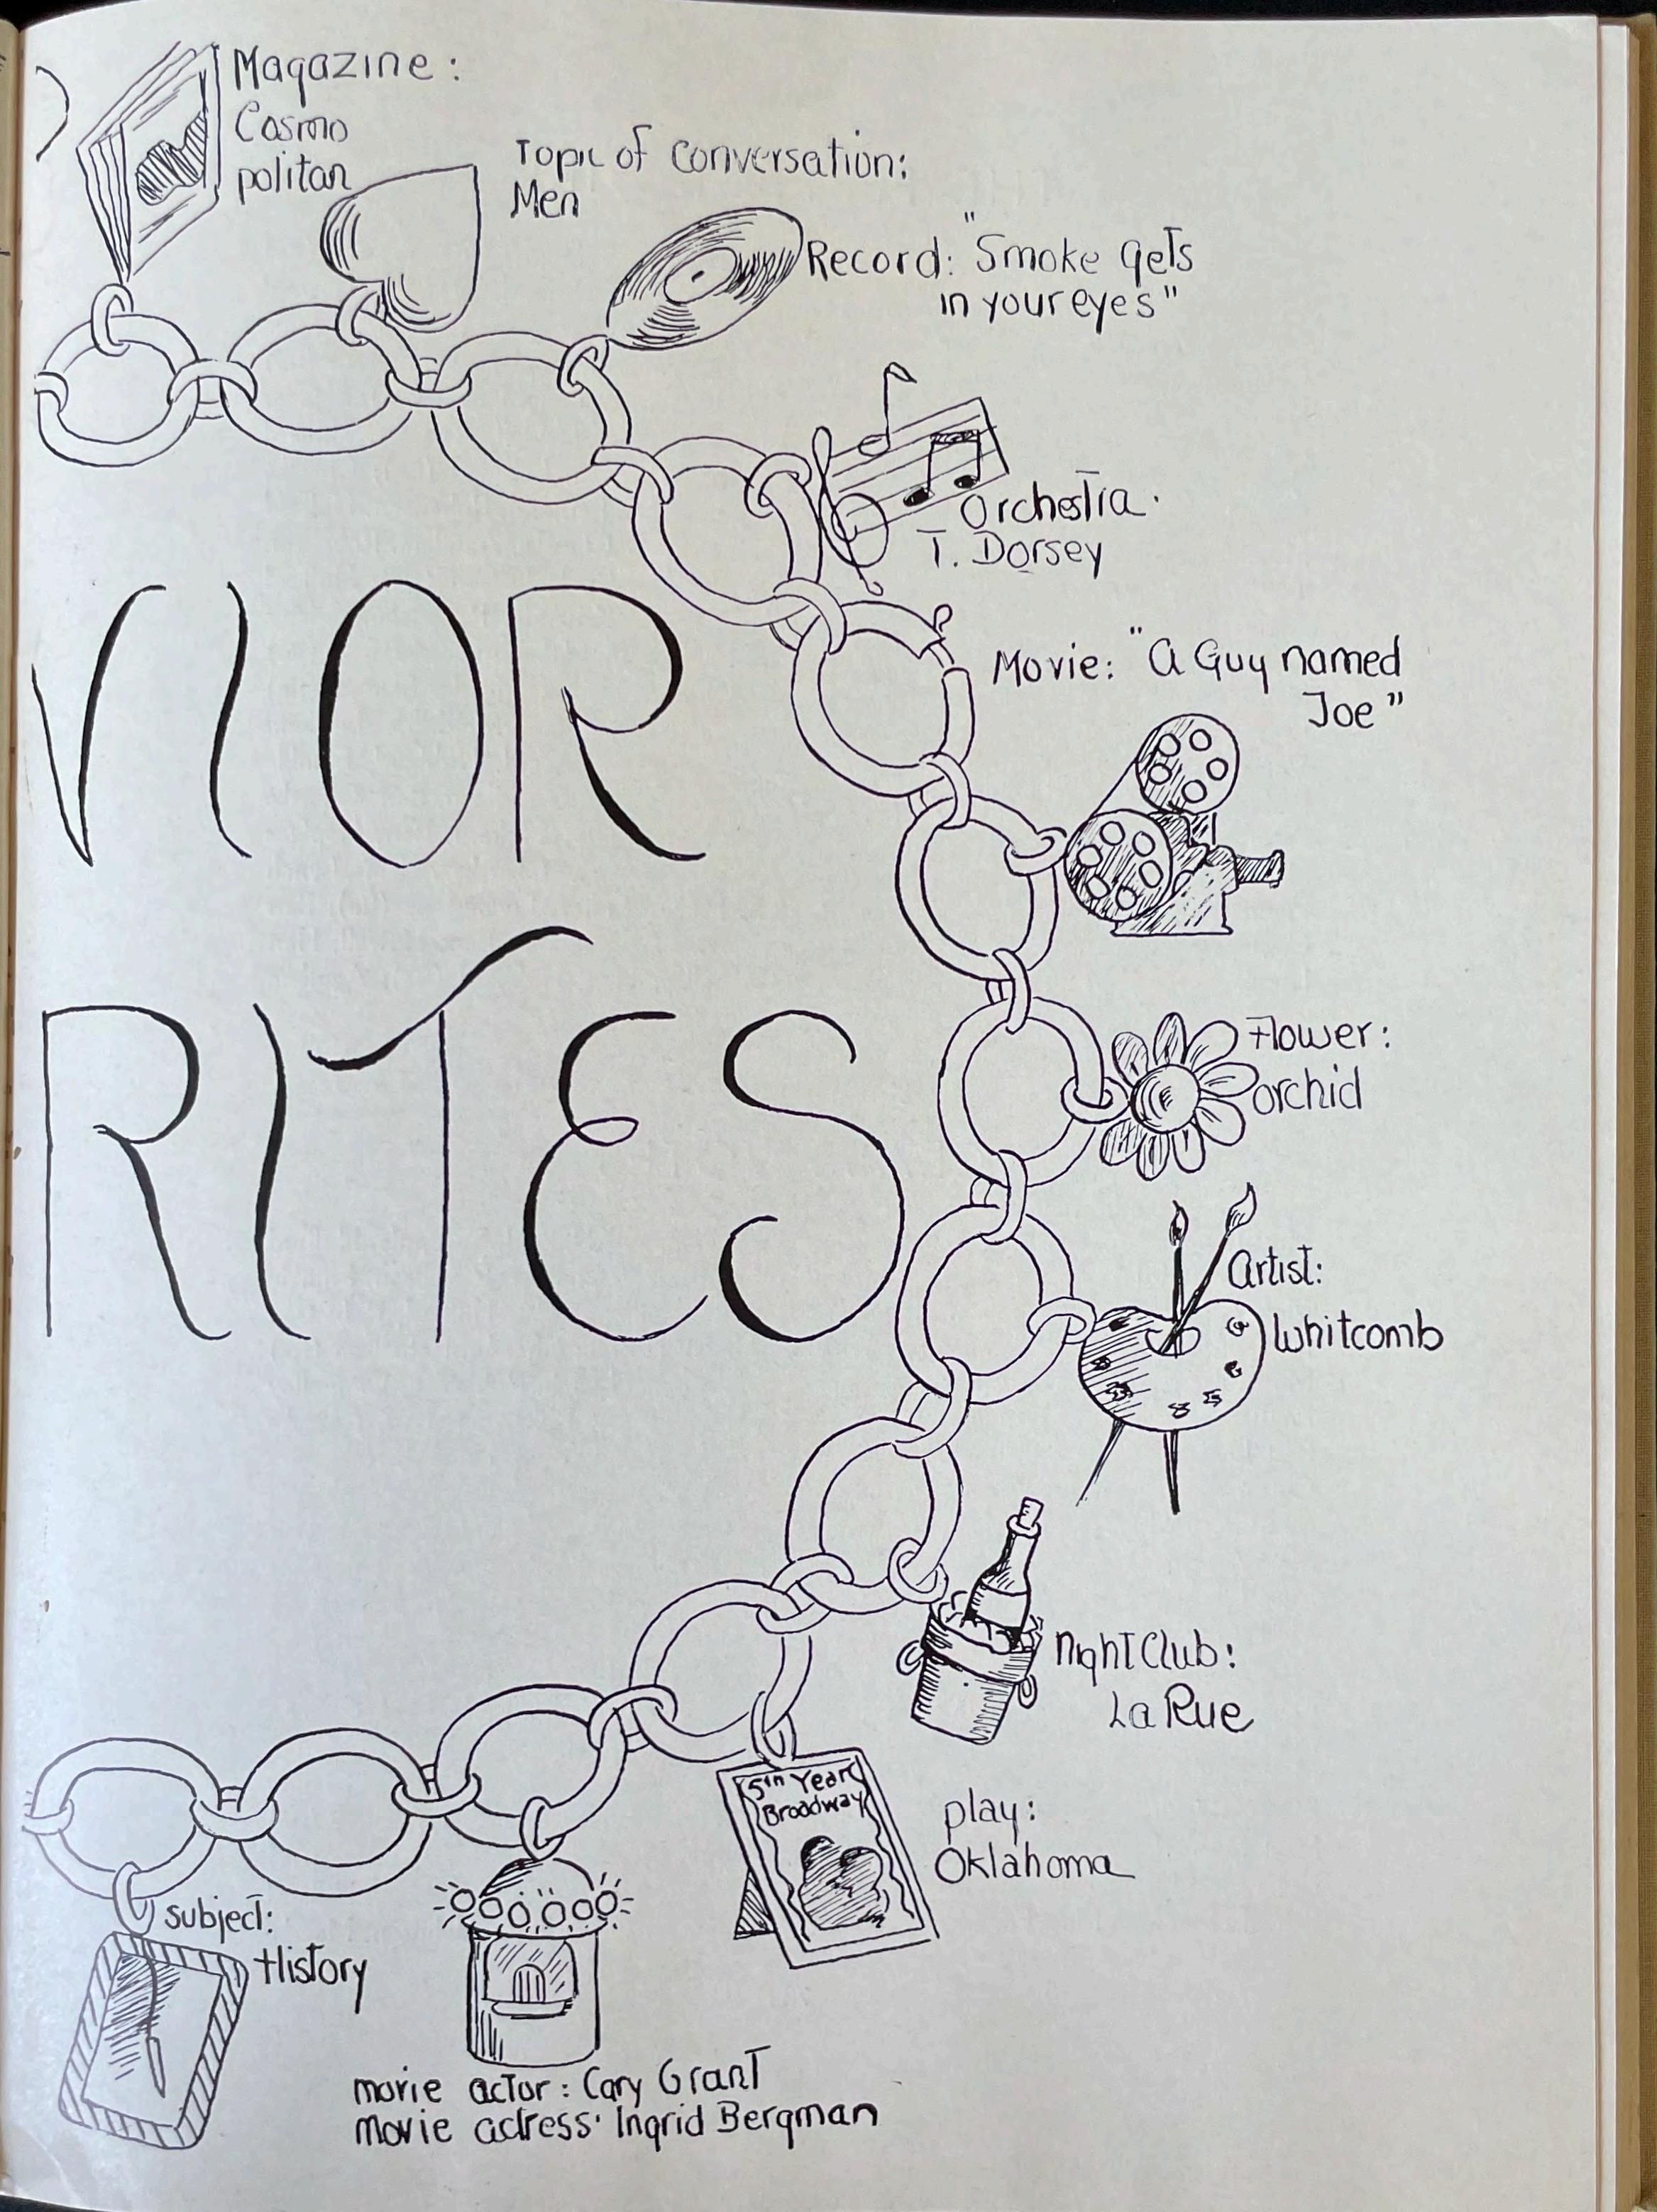 Magazine:
Cosmo
politan
Topic of Conversation:
Men
Record: "Smoke gets
in your eyes"
Orchestra
T. Dorsey
VIOR
Movie: "A Guy named
Joe"
RITES
Flower:
orchid
Artist:
Whitcomb
Night Club:
La Rue
5th Year
Broadway
play:
Oklahoma
subject:
History
movie actor: Cary Grant
movie actress: Ingrid Bergman